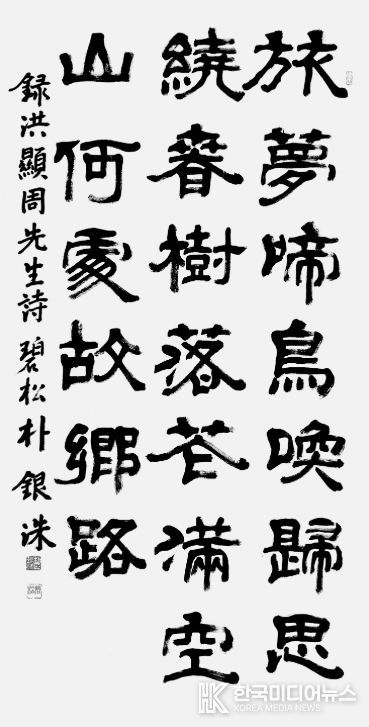 旅夢啼鳥喚歸思
繞春樹落花滿空
山何處故鄉路
録洪顯周先生詩 碧松朴銀洙
HK 한국미디어뉴스
KOREA MEDIA NEWS